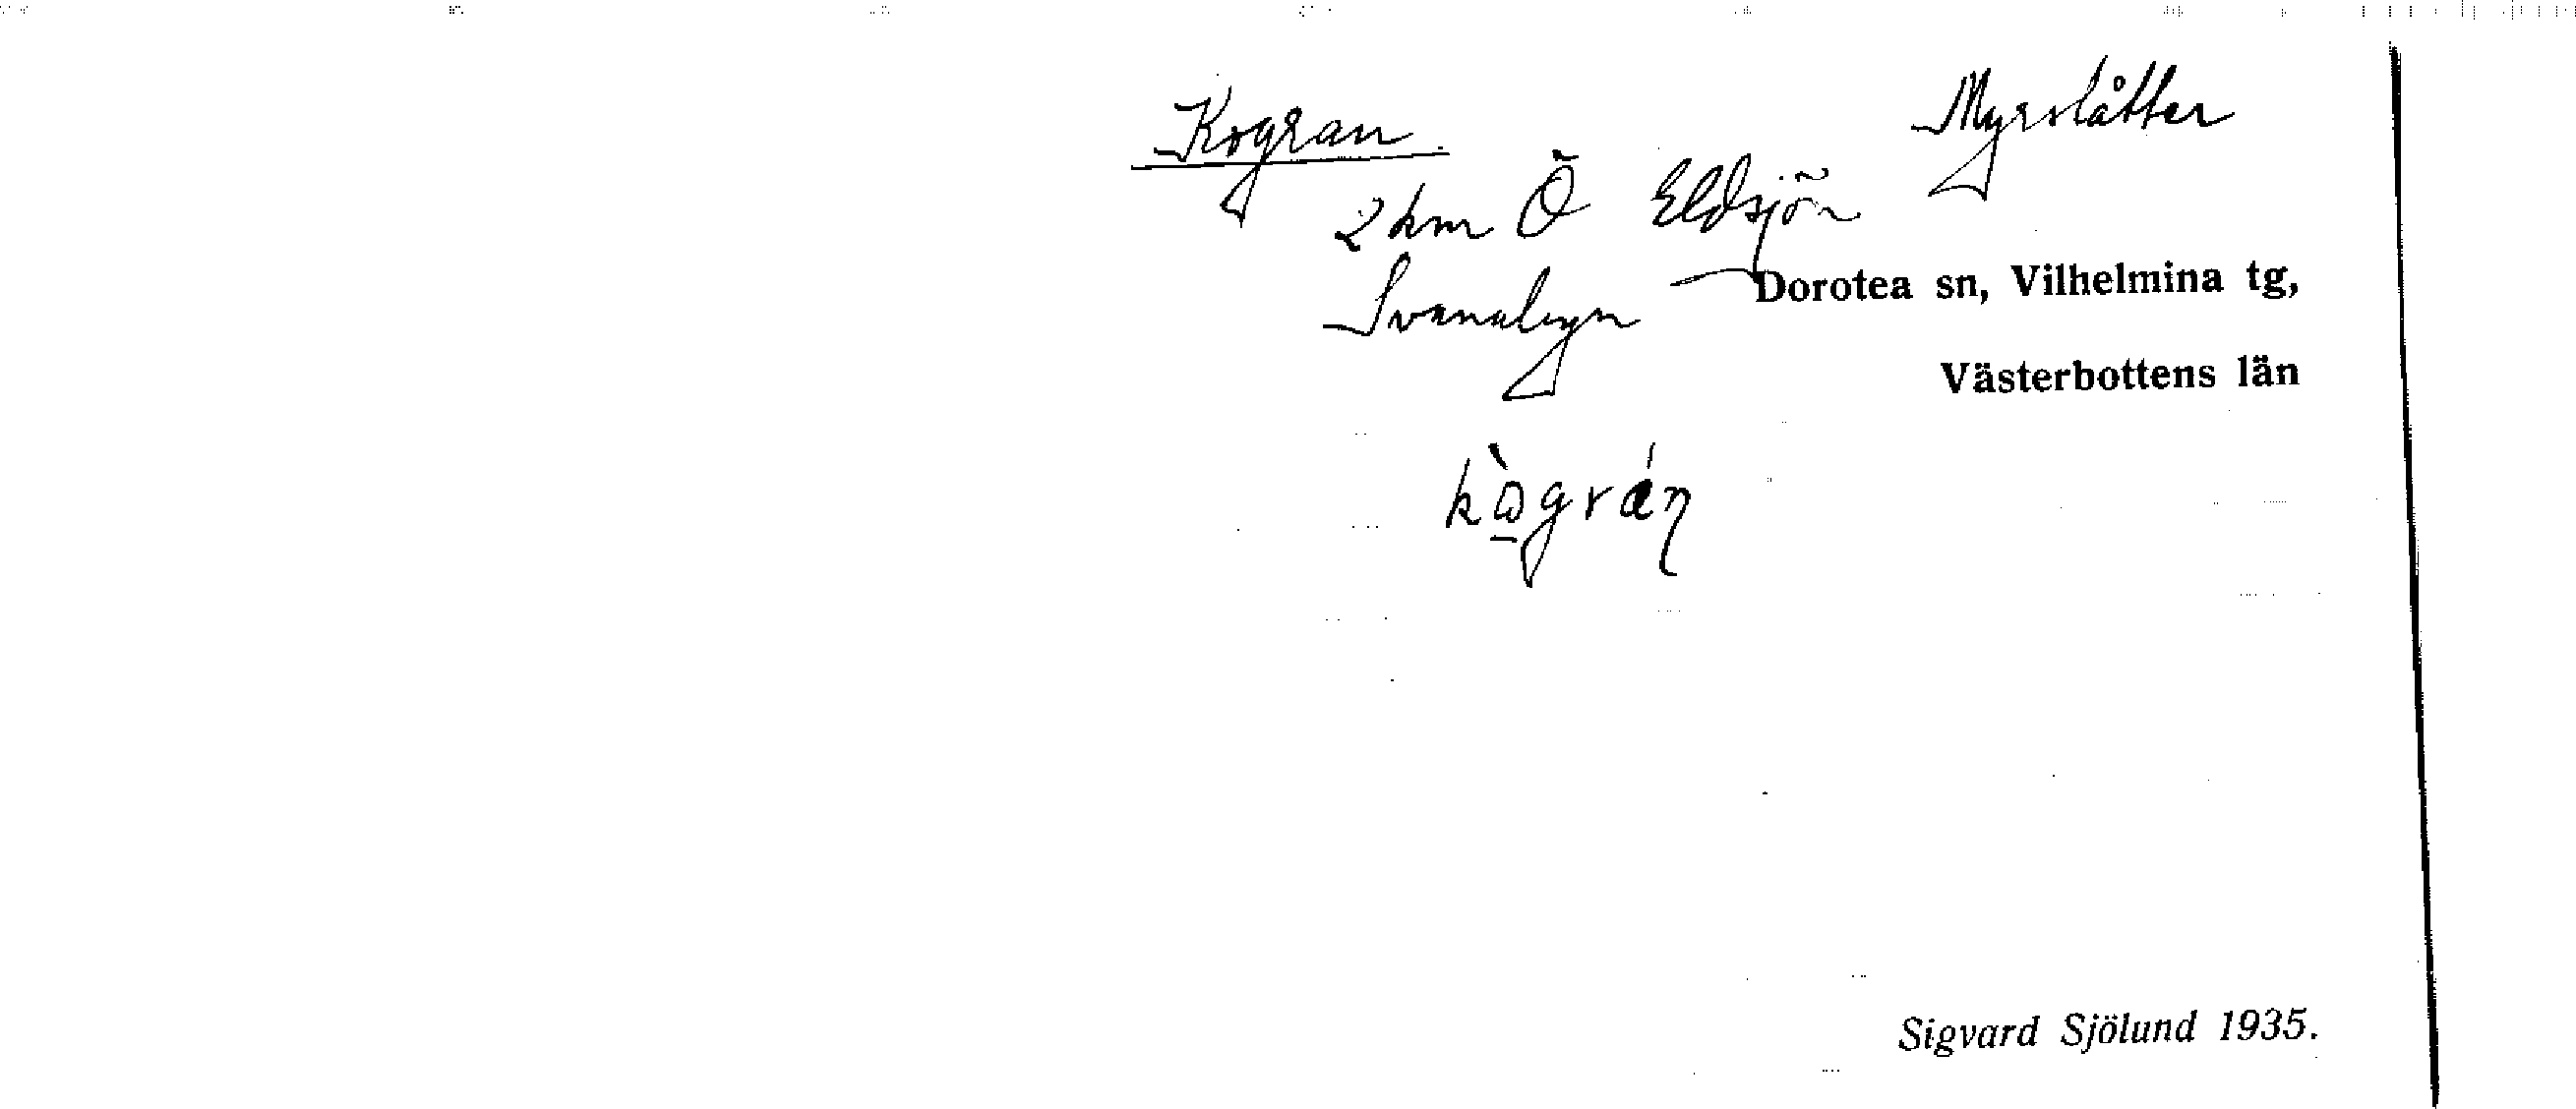 Kogran Myrslåtter
2 km Ö Eldsjön
Svanabyn Dorotea sn, Vilhelmina tg,
Västerbottens län
Sigvard Sjölund 1935.